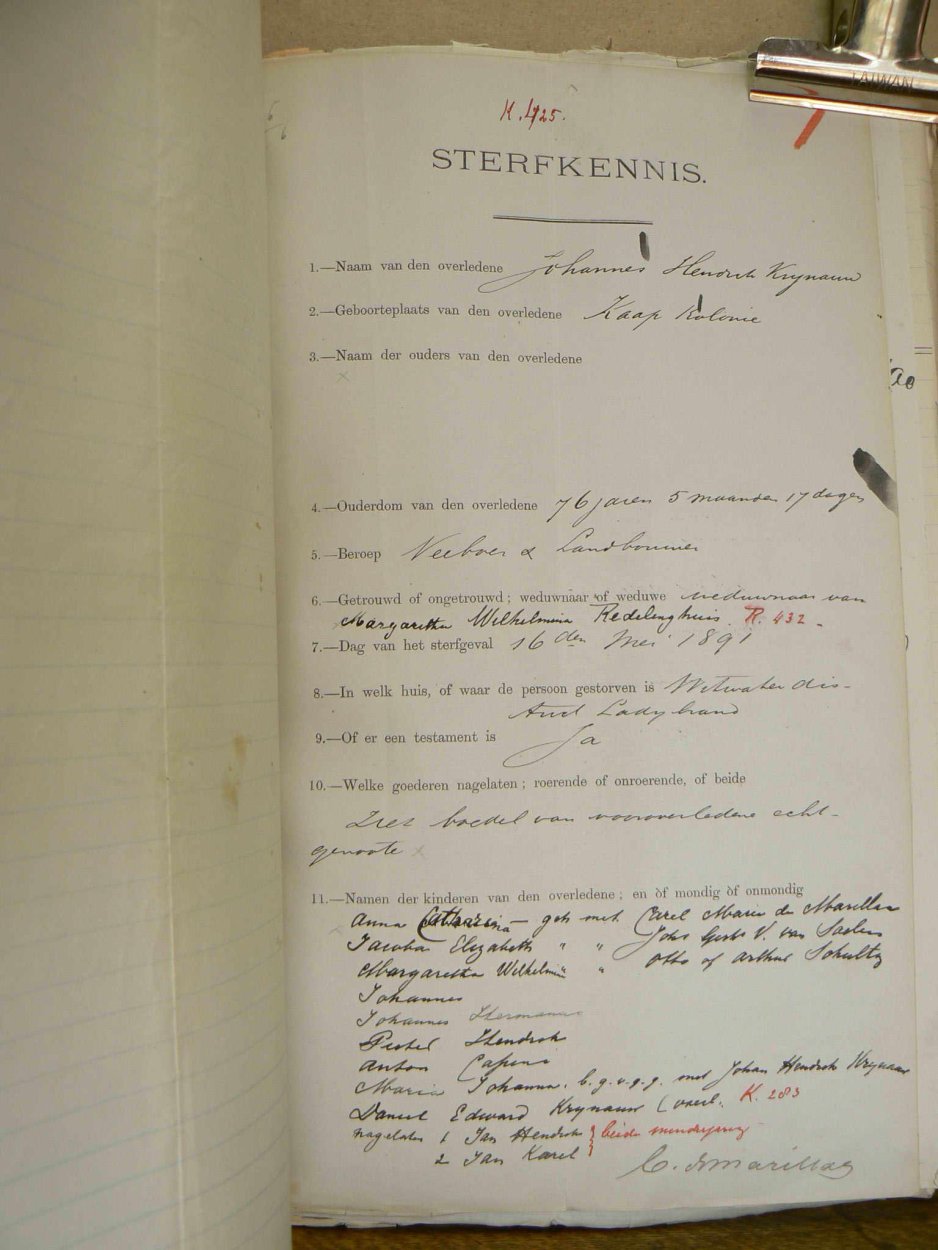 TAIWAN
K. 425.
STERFKENNIS.
1.—Naam van den overledene Johannes Hendrik Krynauw
2.—Geboorteplaats van den overledene Kaap Kolonie
3.—Naam der ouders van den overledene
4.—Ouderdom van den overledene 76 jaren 5 maanden 17 dagen
5.—Beroep Veeboer & Landbouwer
6.—Getrouwd of ongetrouwd; weduwnaar of weduwe weduwnaar van
Margaretha Wilhelmina Redelinghuis. R. 432.
7.—Dag van het sterfgeval 16den Mei 1891
8.—In welk huis, of waar de persoon gestorven is Witwater dis-
trict Ladybrand
9.—Of er een testament is Ja
10.—Welke goederen nagelaten; roerende of onroerende, of beide
Ziet boedel van vooroverledene echt-
genoote
11.—Namen der kinderen van den overledene; en òf mondig òf onmondig
Anna Catharina — geh met Carel Marie de Marillac
Jacoba Elizabeth " " Johs V. van
Margaretha Wilhelmina " Otto of Arthur Schultz
Johannes
Johannes Hermanus
Pieter Hendrik
Anton
Maria Johanna. b.g.v.g.g. met Johan Hendrik Krynauw
Daniel Edward Krynauw (overl. K. 283
nagelaten 1 Jan Hendrik } beide minderjarig
2 Jan Karel
C. d Marillac